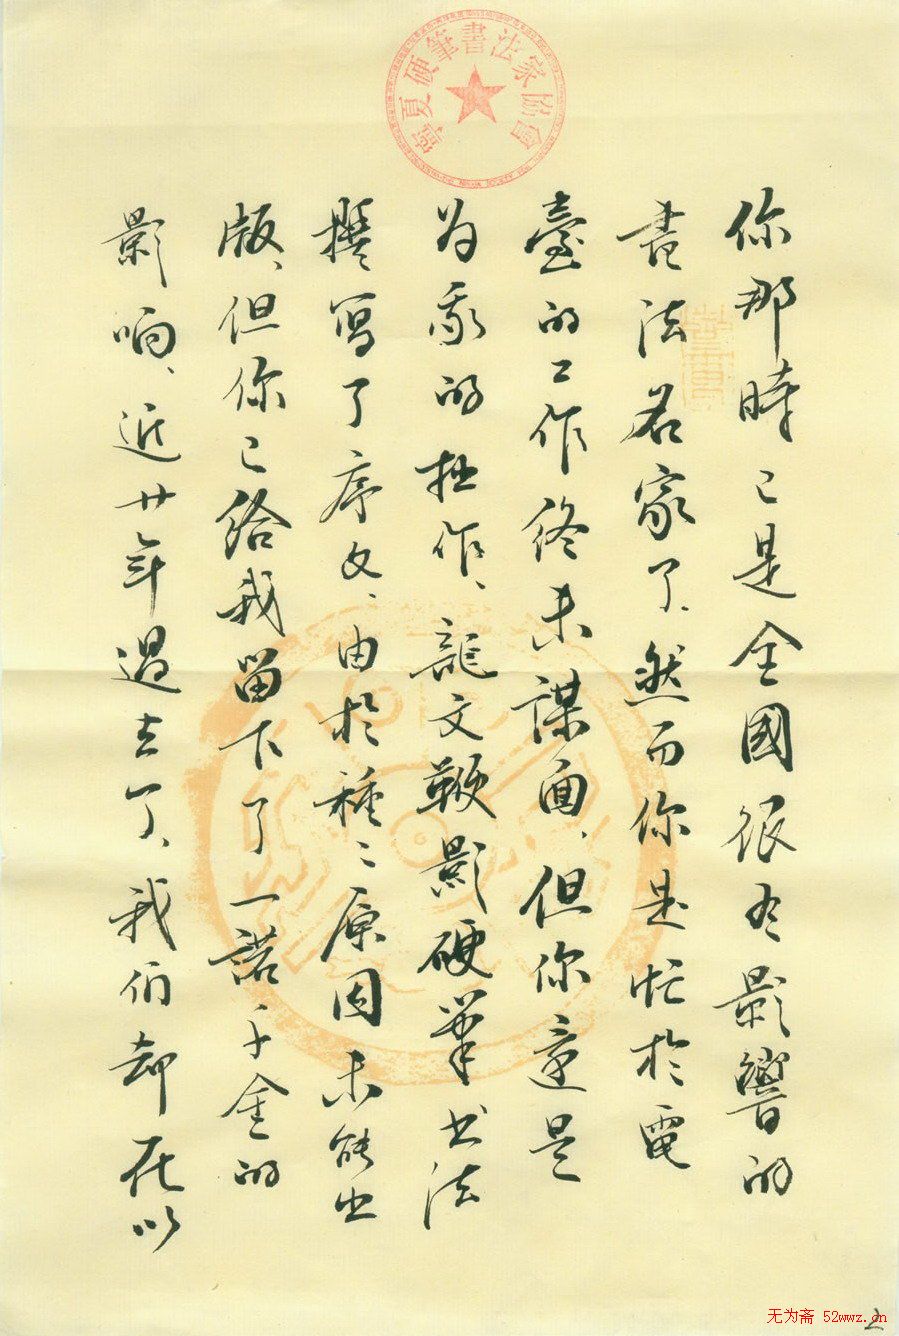 寧夏硬筆書法家協會
你那時已是全國很有影響的
書法名家了、然而你是忙於電
臺的工作终未謀面、但你還是
为我的拙作、龍文鞭影硬筆书法
撰寫了序文、由於種種原因未能出
版、但你已给我留下了一諾千金的
影响、近廿年過去了、我们却在以
无为斋 52wwz.cn